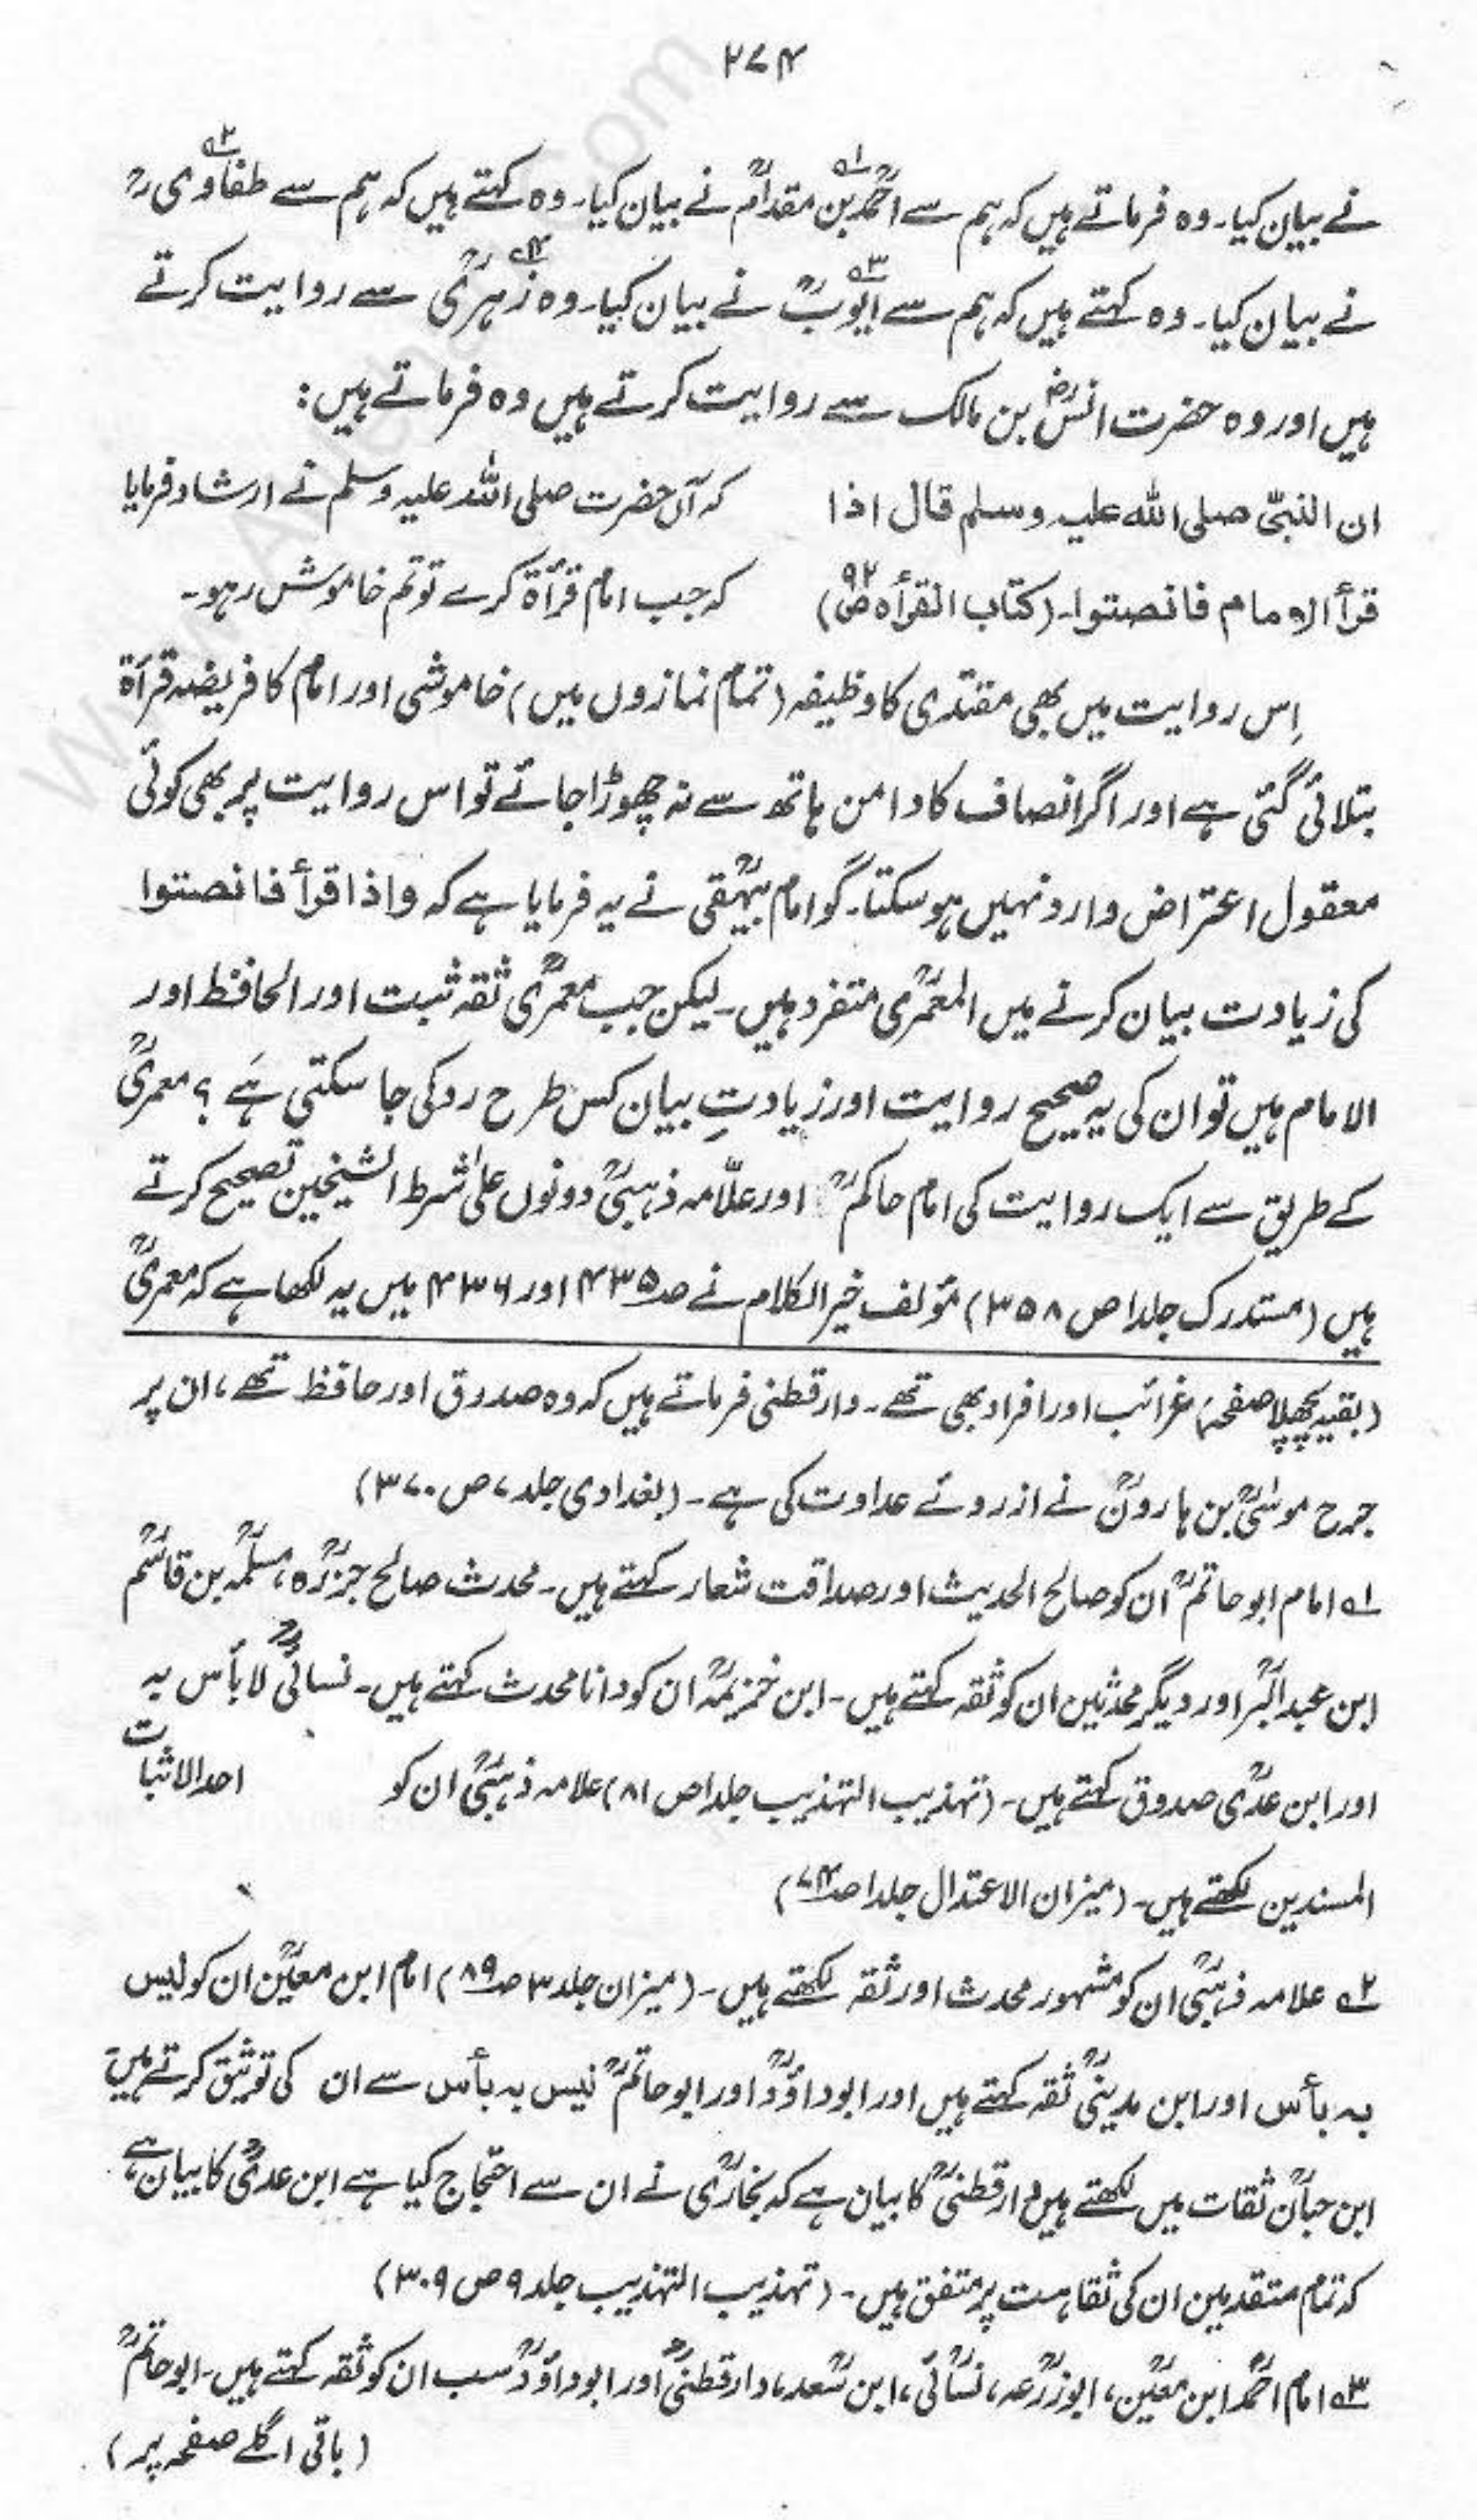 ۲۷۴
نے بیان کیا۔ وہ فرماتے ہیں کہ ہم سے احمدؒ بن مقدامؒ نے بیان کیا۔ وہ کہتے ہیں کہ ہم سے طفاوی رح
نے بیان کیا۔ وہ کہتے ہیں کہ ہم سے ایوبؒ نے بیان کیا۔ وہ زہریؒ سے روایت کرتے
ہیں اور وہ حضرت انسؓ بن مالک سے روایت کرتے ہیں وہ فرماتے ہیں:
ان النبیّ صلی اللہ علیہ وسلم قال اذا کہ آں حضرت صلی اللہ علیہ وسلم نے ارشاد فرمایا
قرأ الامام فانصتوا۔ (کتاب القرأہ ص۹۲) کہ جب امام قرأۃ کرے تو تم خاموش رہو۔
اِس روایت میں بھی مقتدی کا وظیفہ (تمام نمازوں میں) خاموشی اور امام کا فریضہ قرأۃ
بتلائی گئی ہے اور اگر انصاف کا دامن ہاتھ سے نہ چھوڑا جائے تو اس روایت پر بھی کوئی
معقول اعتراض وارد نہیں ہو سکتا۔ گو امام بیہقیؒ نے یہ فرمایا ہے کہ واذا قرأ فانصتوا
کی زیادت بیان کرنے میں المعمریؒ متفرد ہیں۔ لیکن جب معمریؒ ثقہ ثبت اور الحافظ اور
الامام ہیں تو ان کی یہ صحیح روایت اور زیادتِ بیان کس طرح روکی جا سکتی ہے ؟ معمریؒ
کے طریق سے ایک روایت کی امام حاکمؒ اور علّامہ ذہبیؒ دونوں علیٰ شرط الشیخین تصحیح کرتے
ہیں (مستدرک جلد۱ ص ۳۵۸) مؤلف خیر الکلام نے صد ۴۳۵ اور ۴۳۶ میں یہ لکھا ہے کہ معمریؒ
(بقیہ پچھلا صفحہ) غرائب اور افراد بھی تھے۔ دارقطنی فرماتے ہیں کہ وہ صدوق اور حافظ تھے، ان پر
جرح موسیٰؒ بن ہارونؒ نے از روئے عداوت کی ہے۔ (بغدادی جلد ۷ ص ۳۷۰)
۱ امام ابو حاتمؒ ان کو صالح الحدیث اور صداقت شعار کہتے ہیں۔ محدث صالح جزرؒہ، مسلمہؒ بن قاسمؒ
ابن عبدالبرؒ اور دیگر محدثین ان کو ثقہ کہتے ہیں۔ ابن خزیمہؒ ان کو دانا محدث کہتے ہیں۔ نسائیؒ لا بأس بہ
اور ابن عدیؒ صدوق کہتے ہیں۔ (تہذیب التہذیب جلد۱ ص ۸۱) علامہ ذہبیؒ ان کو احد الاثبات
المسندین لکھتے ہیں۔ (میزان الاعتدال جلد۱ صد ۷۴)
۲ علامہ ذہبیؒ ان کو مشہور محدث اور ثقہ لکھتے ہیں۔ (میزان جلد ۳ صد ۸۹) امام ابن معینؒ ان کو لیس
بہ بأس اور ابن مدینیؒ ثقہ کہتے ہیں اور ابو داؤدؒ اور ابو حاتمؒ لیس بہ بأس سے ان کی توثیق کرتے ہیں
ابن حبانؒ ثقات میں لکھتے ہیں دارقطنیؒ کا بیان ہے کہ بخاریؒ نے ان سے احتجاج کیا ہے ابن عدیؒ کا بیان ہے
کہ تمام متقدمین ان کی ثقاہت پر متفق ہیں۔ (تہذیب التہذیب جلد ۹ ص ۳۰۹)
۳ امام احمدؒ ابن معینؒ، ابوزرعہؒ، نسائیؒ، ابن سعدؒ، دارقطنیؒ اور ابوداؤدؒ سب ان کو ثقہ کہتے ہیں۔ ابو حاتمؒ
(باقی اگلے صفحہ پر)